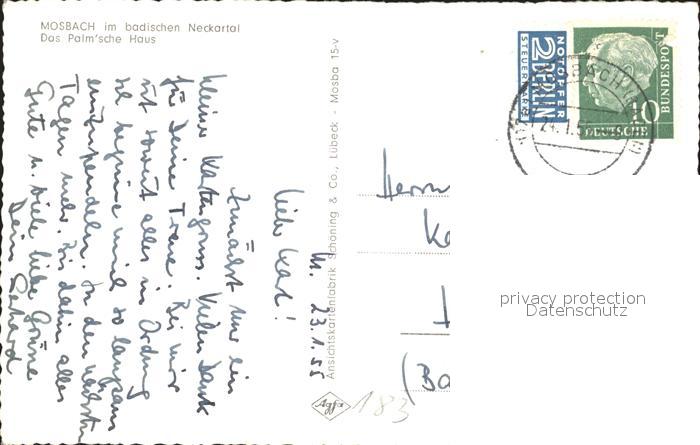 MOSBACH im badischen Neckartal
Das Palm'sche Haus
M. 23.1.55
Lieber Karl!
Zunächst nur ein
kleiner Kartengruss. Vielen Dank
für Deine Treue. Bei mir
ist soweit alles in Ordnung
beginne mich so langsam
einzupendeln. In den nächsten
Tagen mehr. Bis dahin alles
Gute u. viele liebe Grüsse
Dein Gerhard
Ansichtskartenfabrik Schöning & Co., Lübeck - Mosba 15-v
Agfa
183
NOTOPFER
2 BERLIN
STEUERMARKE
DEUTSCHE
BUNDESPOST
10
24.1.5
Herrn
Ka
(Ba
privacy protection
Datenschutz